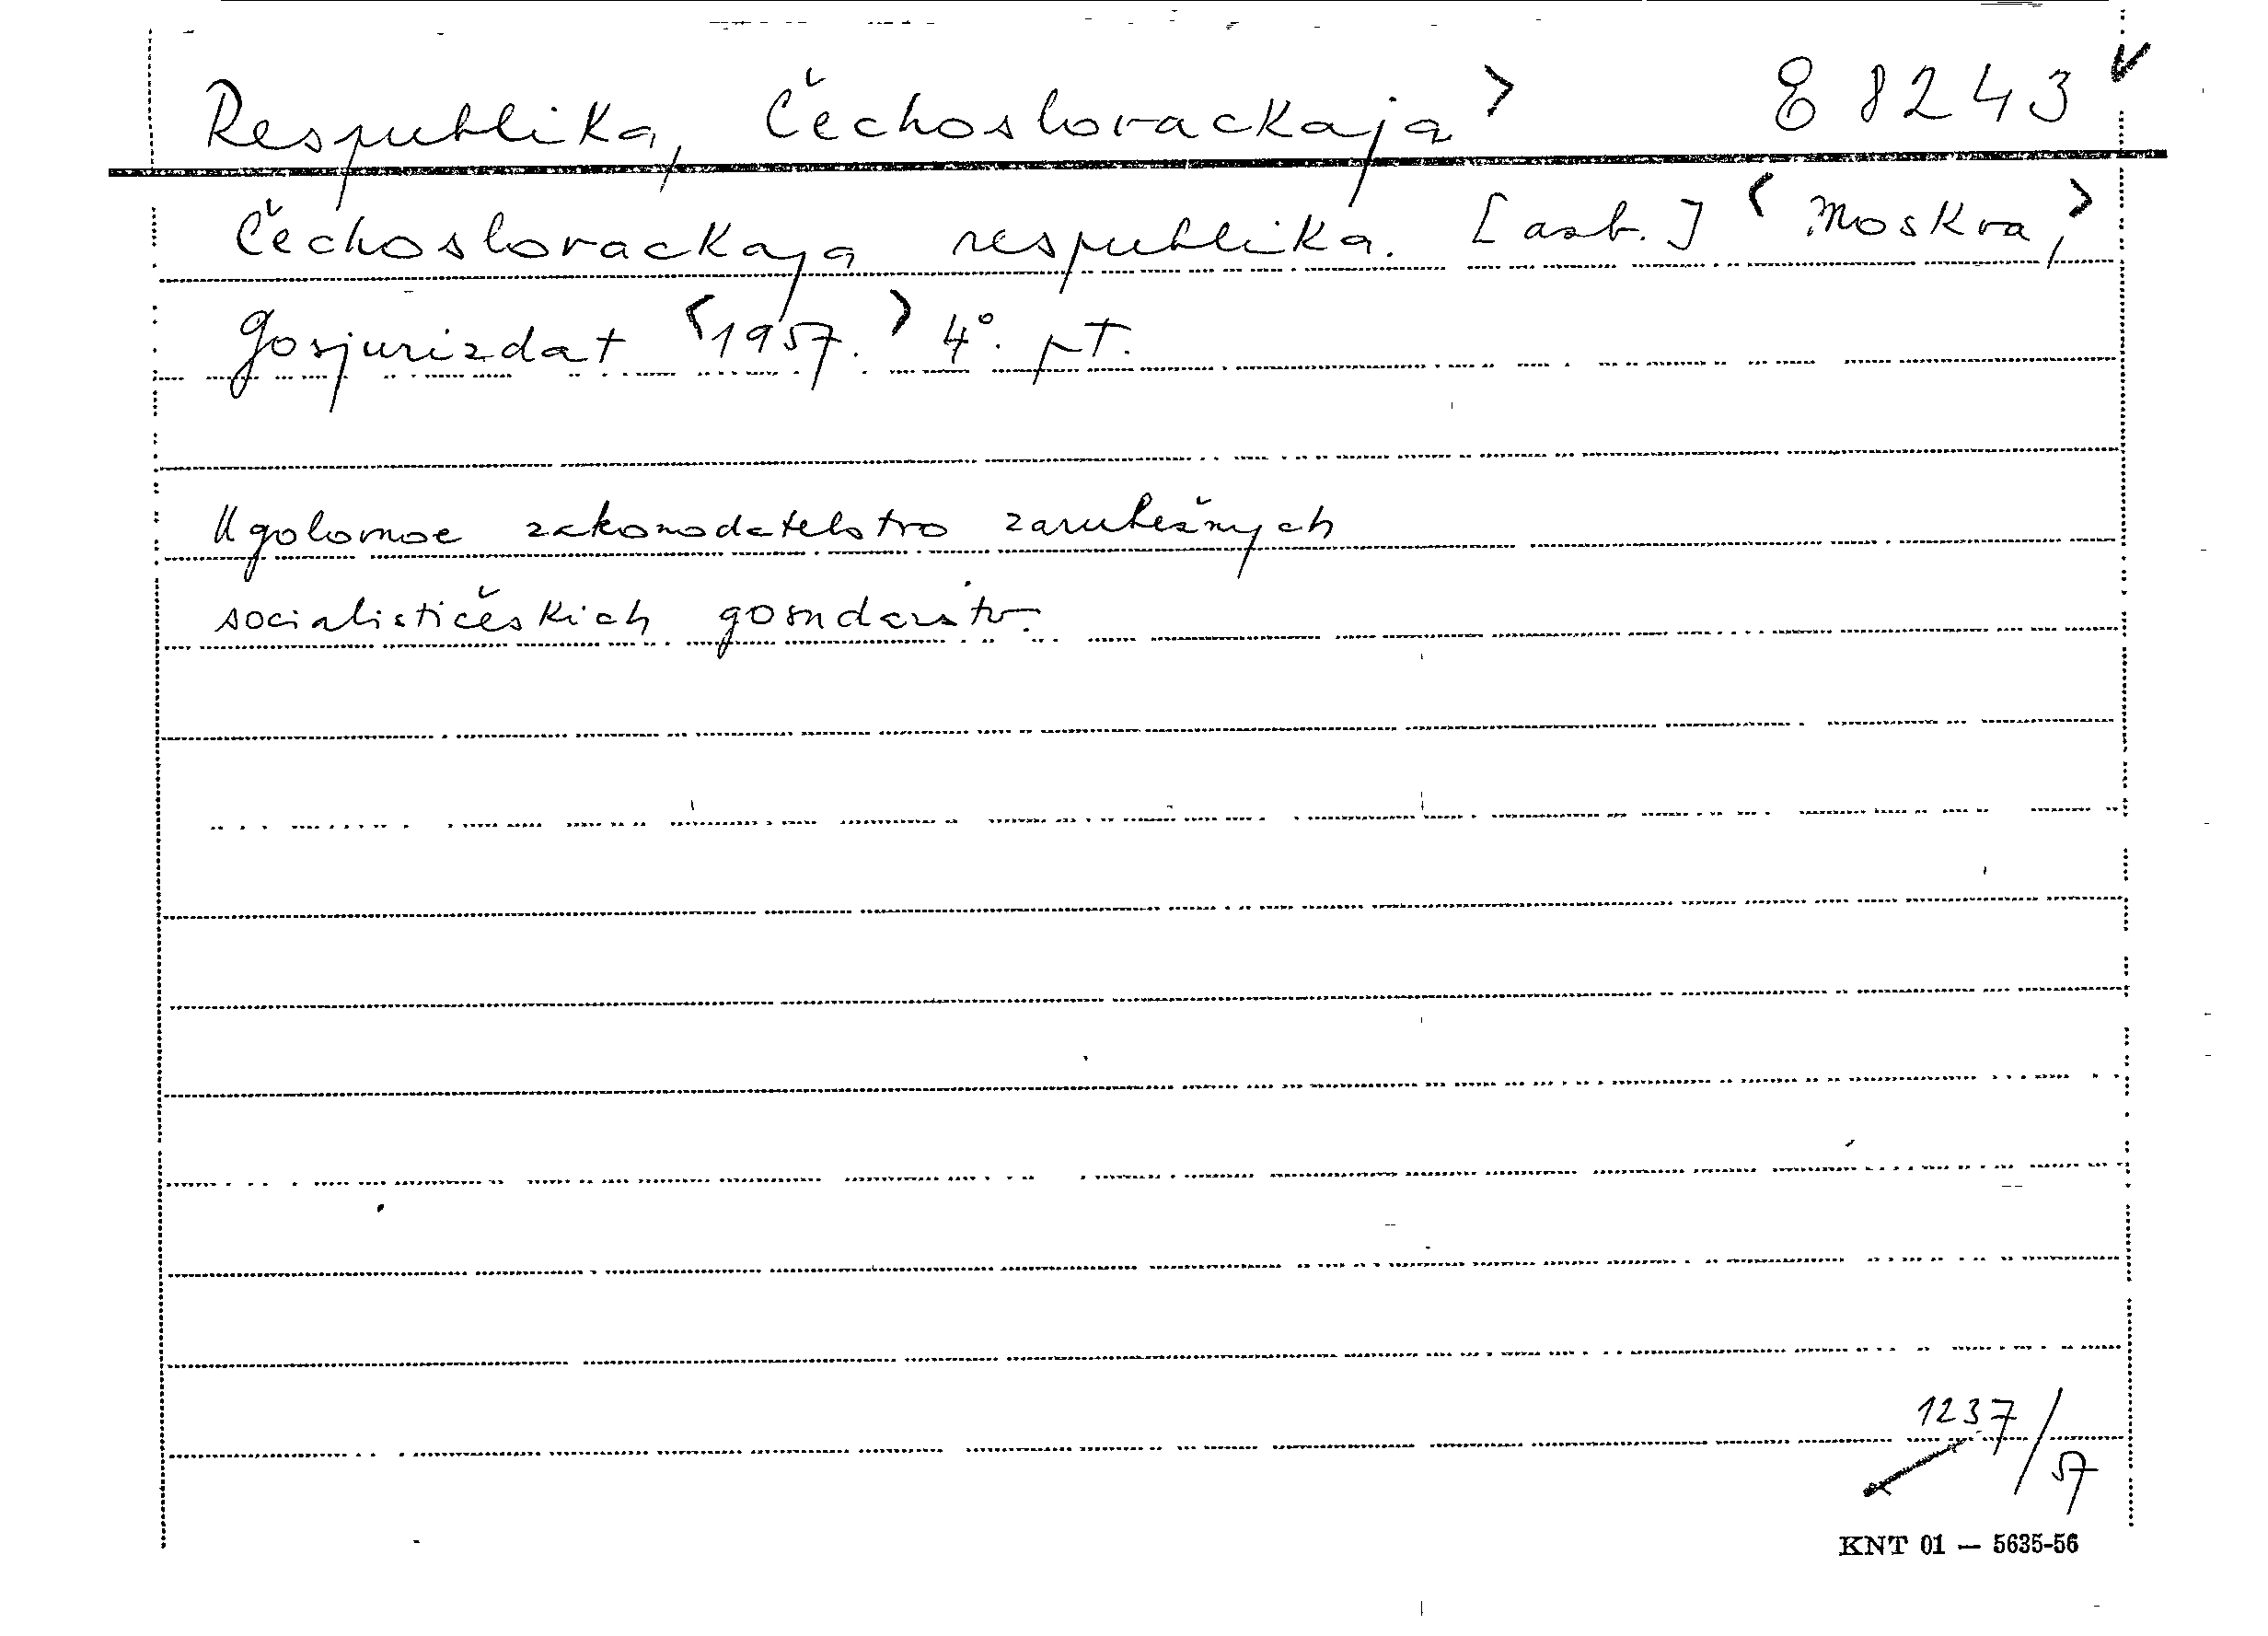 Respublika, Čechoslovackaja> E 8243
Čechoslovackaja respublika. [azb.] <Moskva,>
Gosjurizdat <1957.> 4°. pT.
Ugolovnoe zakonodatelstvo zarubežnych
socialističeskich gosudarstv.
1237/57
KNT 01 — 5635-56